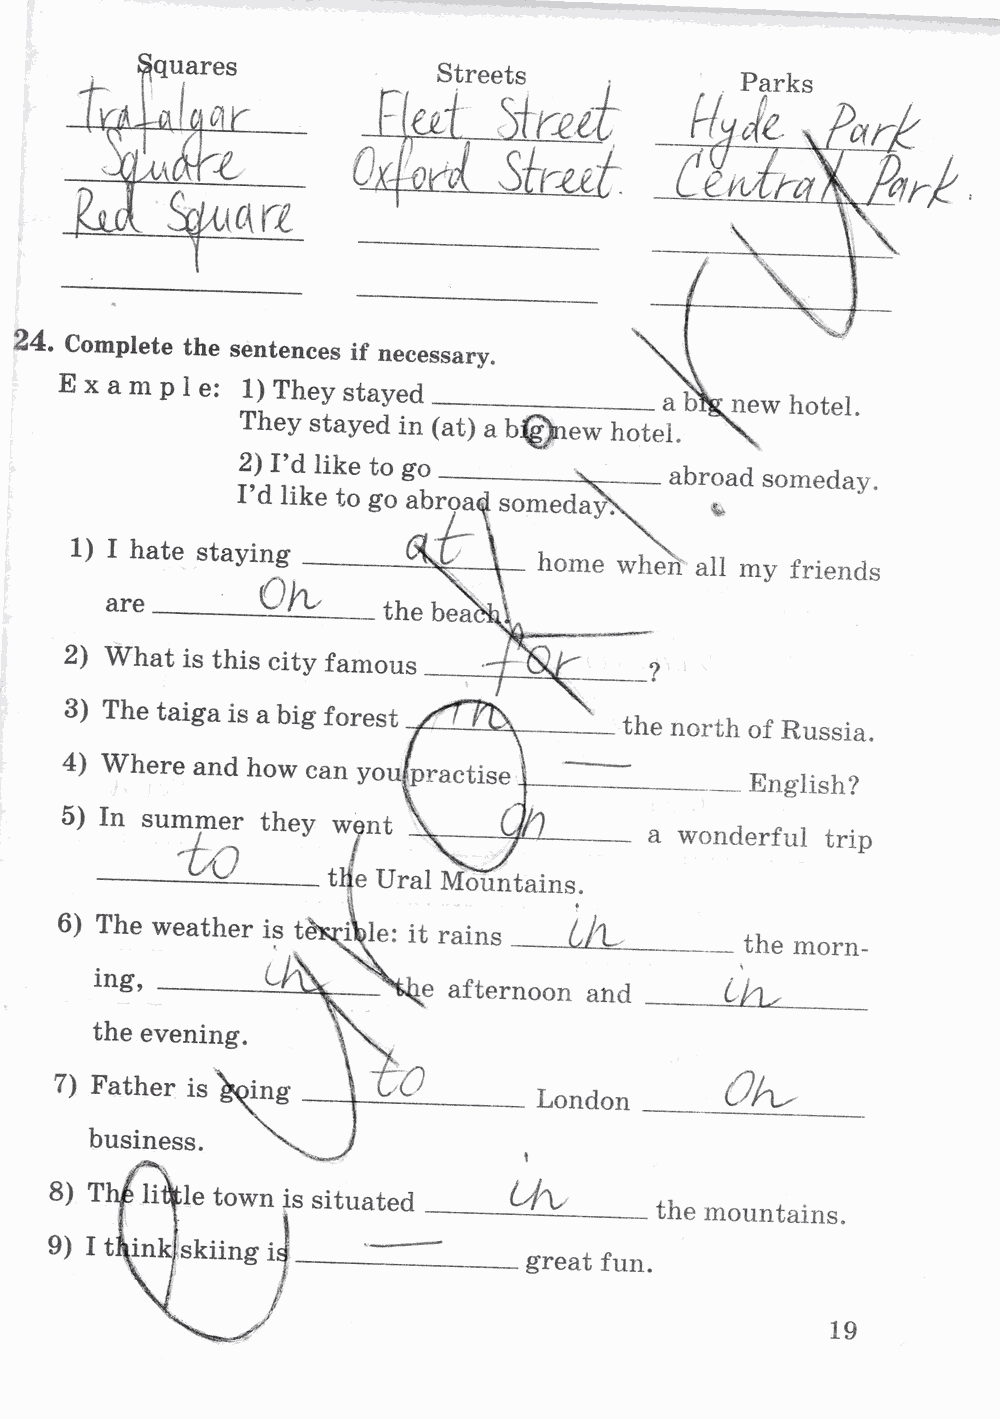 Squares Streets Parks
Trafalgar Fleet Street Hyde Park
Square Oxford Street. Central Park.
Red Square
24. Complete the sentences if necessary.
Example: 1) They stayed ____ a big new hotel.
They stayed in (at) a big new hotel.
2) I'd like to go ____ abroad someday.
I'd like to go abroad someday.
1) I hate staying at home when all my friends
are on the beach.
2) What is this city famous for ?
3) The taiga is a big forest in the north of Russia.
4) Where and how can you practise — English?
5) In summer they went on a wonderful trip
to the Ural Mountains.
6) The weather is terrible: it rains in the morn-
ing, in the afternoon and in
the evening.
7) Father is going to London on
business.
8) The little town is situated in the mountains.
9) I think skiing is — great fun.
19